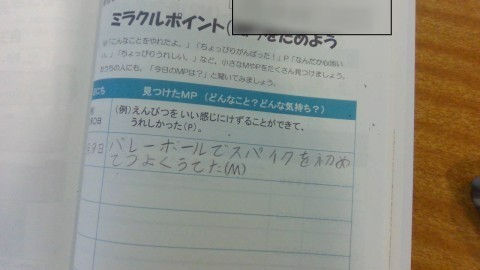 ミラクルポイント(
をためよう
M「こんなことをやれたよ。」「ちょっぴりがんばった!」P「なんだか心地い
い。」「ちょっぴりうれしい。」など、小さなMやPをたくさん見つけましょう。
うちの人にも、「今日のMPは?」と聞いてみましょう。
見つけたMP(どんなこと?どんな気持ち?)
(例)えんぴつをいい感じにけずることができて、
うれしかった(P)。
バレーボールでスパイクを初め
てつよくうてた(M)